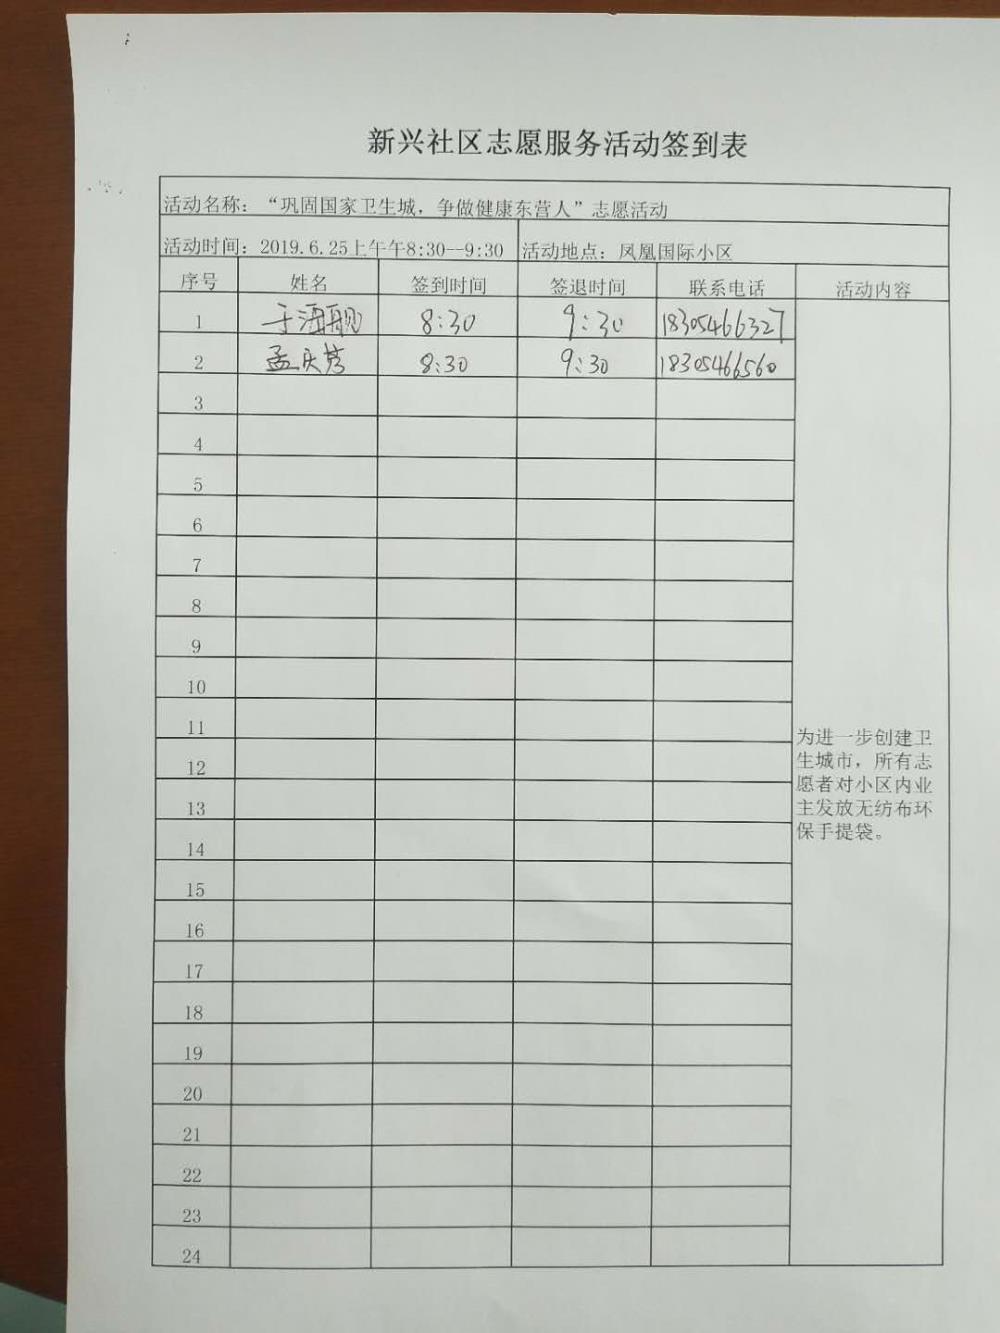 新兴社区志愿服务活动签到表
活动名称：“巩固国家卫生城，争做健康东营人”志愿活动
活动时间：2019.6.25上午午8:30--9:30 活动地点：凤凰国际小区
序号 姓名 签到时间 签退时间 联系电话 活动内容
1 于海舰 8:30 9:30 18305466327
2 孟庆 8:30 9:30 18305466560
3
4
5
6
7
8
9
10
11
12
13
14
15
16
17
18
19
20
21
22
23
24
为进一步创建卫
生城市，所有志
愿者对小区内业
主发放无纺布环
保手提袋。